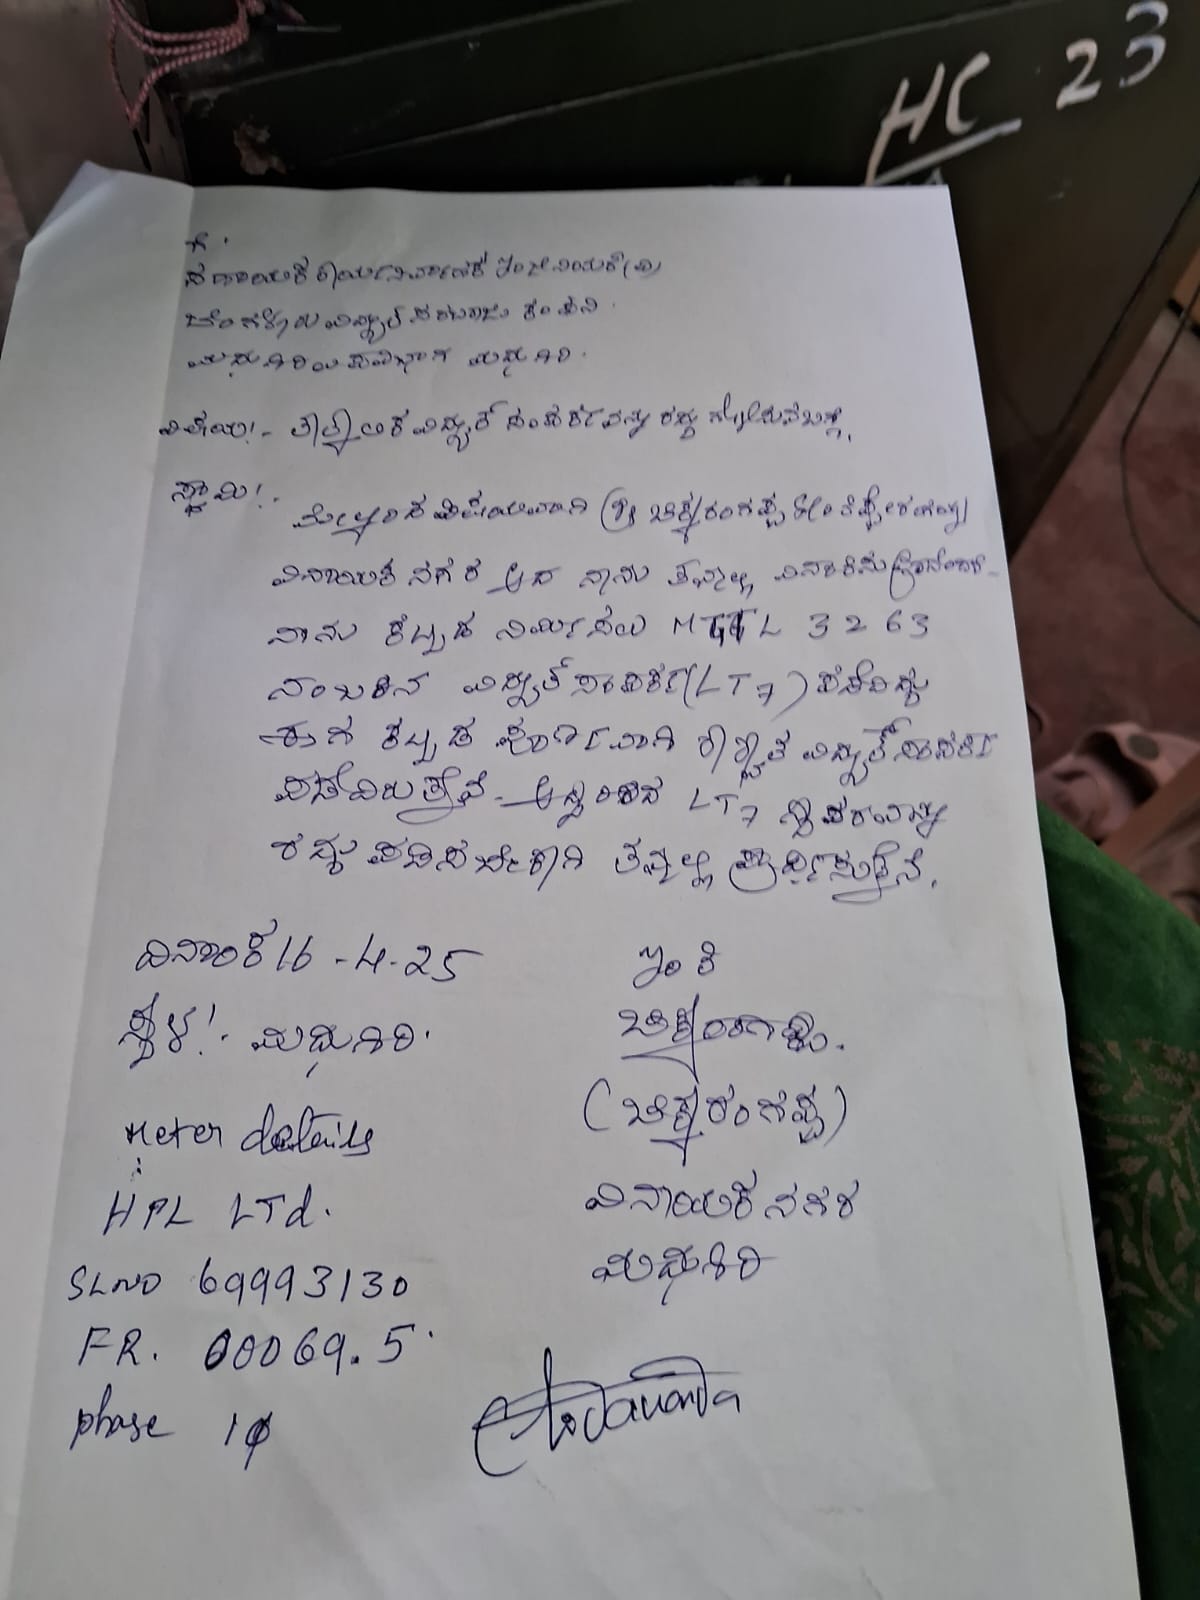 HC 23
ಗೆ.
ಸಹಾಯಕ ಕಾರ್ಯನಿರ್ವಾಹಕ ಇಂಜಿನಿಯರ್ (ವಿ)
ಬೆಂಗಳೂರು ವಿದ್ಯುತ್ ಸರಬರಾಜು ಕಂಪನಿ.
ಮಧುಗಿರಿ ಉಪವಿಭಾಗ ಮಧುಗಿರಿ.
ವಿಷಯ:- ತಾತ್ಕಾಲಿಕ ವಿದ್ಯುತ್ ಸಂಪರ್ಕವನ್ನು ರದ್ದು
ಸ್ವಾಮಿ:-
ಮೇಲ್ಕಂಡ ವಿಷಯವಾಗಿ ಶ್ರೀ ಚಿಕ್ಕರಂಗಪ್ಪ
ವಿನಾಯಕ ನಗರ ಆದ ನಾನು ತಮ್ಮಲ್ಲಿ
ನಾನು ಕಟ್ಟಡ ನಿರ್ಮಿಸಲು MTTL 3263
ನಂಬರಿನ ವಿದ್ಯುತ್ ಸಂಪರ್ಕ (LT7) ಪಡೆದಿದ್ದು
ಈಗ ಕಟ್ಟಡ ಪೂರ್ಣವಾಗಿ ಶಾಶ್ವತ ವಿದ್ಯುತ್ ಸಂಪರ್ಕ
ಪಡೆದಿರುತ್ತೇವೆ. ಆದ್ದರಿಂದ LT7 ಸ್ಥಾವರವನ್ನು
ರದ್ದು ಪಡಿಸಬೇಕಾಗಿ ತಮ್ಮಲ್ಲಿ ಪ್ರಾರ್ಥಿಸುತ್ತೇನೆ.
ದಿನಾಂಕ 16-4-25
ಇಂತಿ
ಸ್ಥಳ:- ಮಧುಗಿರಿ.
ಚಿಕ್ಕರಂಗಪ್ಪ.
(ಚಿಕ್ಕರಂಗಪ್ಪ)
ವಿನಾಯಕ ನಗರ
ಮಧುಗಿರಿ
Meter details
:
HPL LTd.
SLNO 69993130
FR. 00069.5
phase 1φ